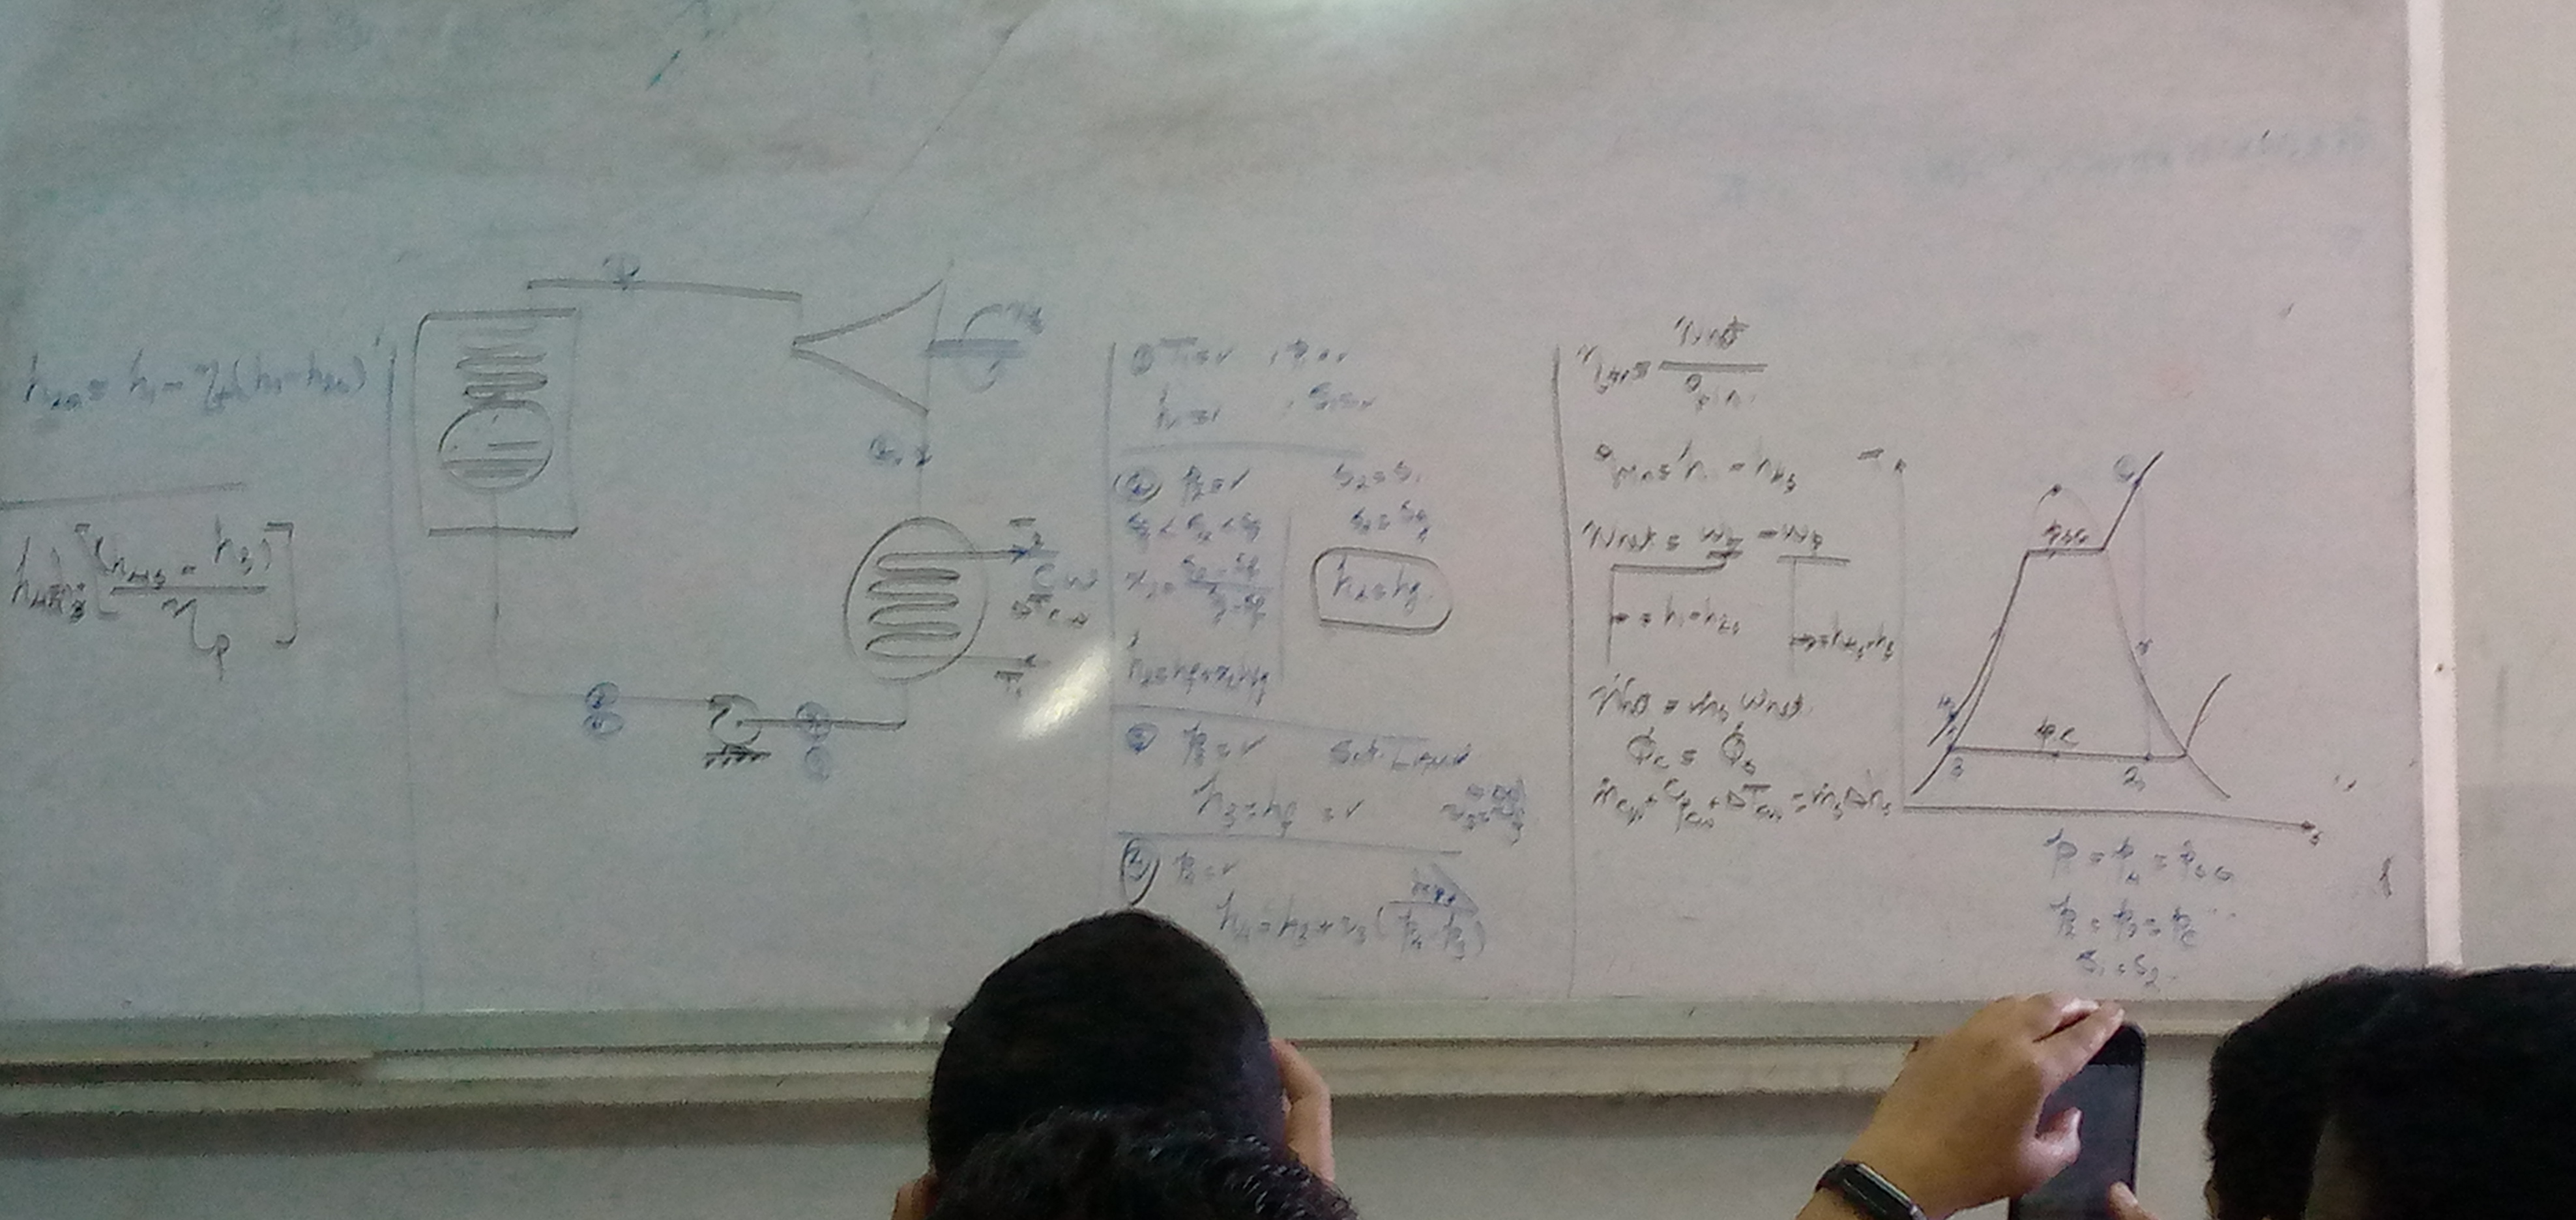 h₂ₐ = h₁ - η_t(h₁ - h₂ₛ)
[(h₄ₛ - h₃) / η_p]
①
T₂
C.W
ΔT_c.w
T₁
③
① T₁ = ✓ , P₁ = ✓
h₁ = ✓ , S₁ = ✓
② P₂ = ✓
S_f < S₂ < S_g
x₂ = (S₂ - S_f) / (S_g - S_f)
h₂ = h_f + x₂ h_fg
S₂ = S₁
S₂ = S_g
h₂ = h_g
③ P₃ = ✓ Sat. Liquid
h₃ = h_f = ✓
④ P₄ = ✓
h₄ = h₃ + v₃(P₄ - P₃)
η_th = W_net / q_in
q_in = h₁ - h₄ₛ
W_net = W_T - W_P
= h₁ - h₂ₛ
= h₄ₛ - h₃
Ẇ_net = ṁ_s w_net
Q̇_c = Q̇_s
ṁ_cw * C_pcw * ΔT_cw = ṁ_s Δh_s
T
P_SG
P_c
3
2s
s
P₁ = P₄ = P_SG
P₂ = P₃ = P_c
S₁ = S₂